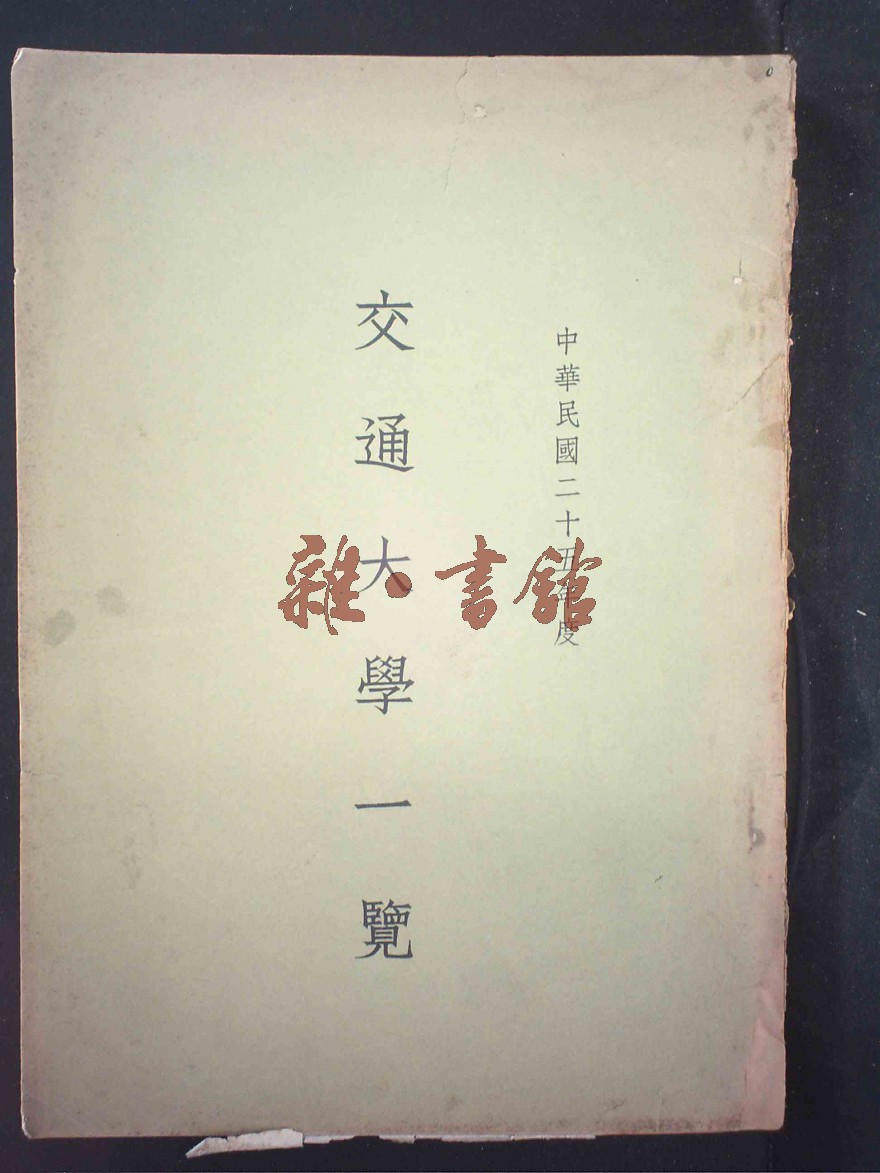 中華民國二十五年度
交通大學一覽
雜·書館